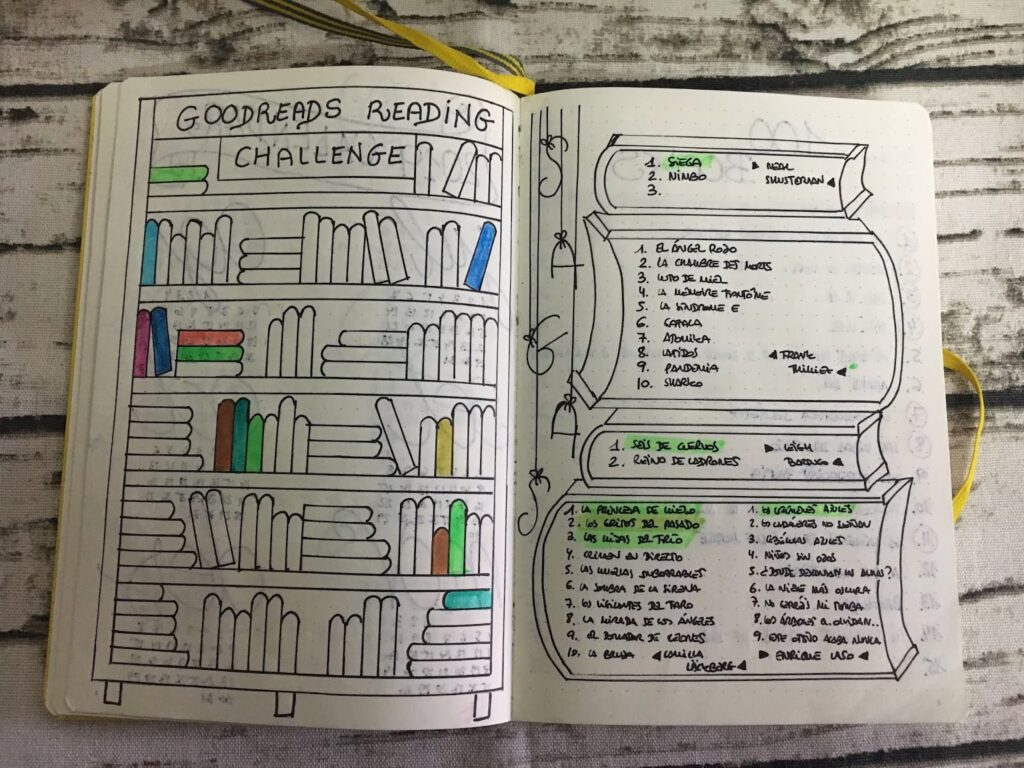 GOODREADS READING
CHALLENGE
SERIES
1. SIEGA
2. NIMBO
3.
▶ NEAL
SHUSTERMAN ◀
1. EL ÁNGEL ROJO
2. LA CHAMBRE DES MORTS
3. LUTO DE MIEL
4. LA MÉMOIRE FANTÔME
5. LA SÍNDROME E
6. GATACA
7. ATOMKA
8. LATIDOS
9. PANDEMIA
10. SHARKO
◀ FRANK
THILLIEZ ◀
1. SEIS DE CUERVOS
2. REINO DE LADRONES
▶ LEIGH
BARDUGO ◀
1. LA PRINCESA DE HIELO
2. LOS GRITOS DEL PASADO
3. LAS HIJAS DEL FRÍO
4. CRIMEN EN DIRECTO
5. LAS HUELLAS IMBORRABLES
6. LA SOMBRA DE LA SIRENA
7. LOS VIGILANTES DEL FARO
8. LA MIRADA DE LOS ÁNGELES
9. EL DOMADOR DE LEONES
10. LA BRUJA
◀ CAMILLA
LÄCKBERG ◀
1. LOS CRÍMENES AZULES
2. LOS CADÁVERES NO SUEÑAN
3. LÁGRIMAS AZULES
4. NIÑOS SIN OJOS
5. ¿DÓNDE DESCANSAN LAS ALMAS?
6. LA NIEVE MÁS OSCURA
7. NO CERRÉIS MI TUMBA
8. LOS ÁRBOLES OLVIDAN..
9. ESTE OTOÑO ACABA NUNCA
▶ ENRIQUE LASO ◀